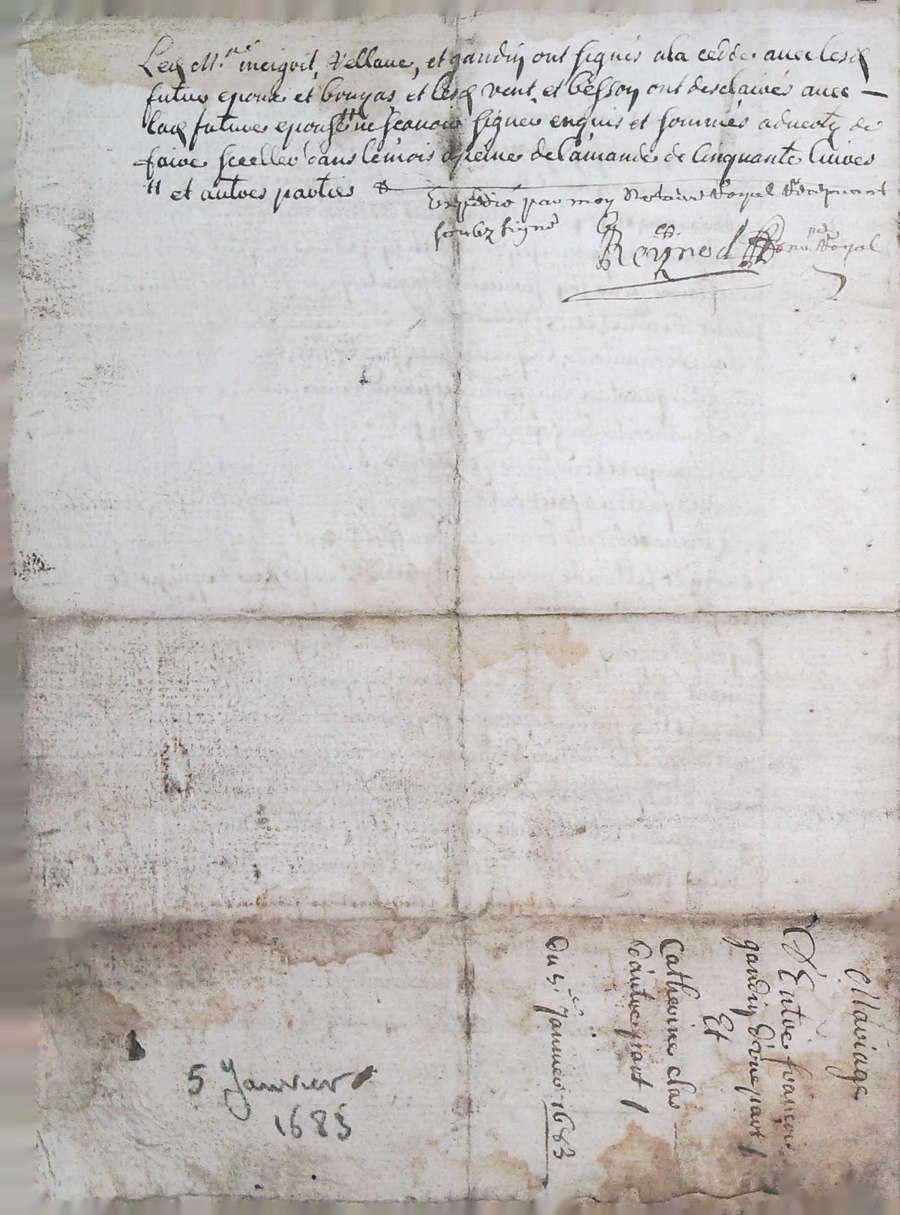 Lesd Mrs meigret, Vellaue, et gaudin ont signés a la cedde auec lesd
futur epoux et bruyas et lesd vent et besson ont desclairés auec
lad future epouse ne scauoir signer enquis et sommés aduertys de
faire sceller dans le mois a peine de l'amande de Cinquante liures
tt et autres parties
Expédié par moy Notaire Royal
soubz signé
Reynod nore Royal
Mariage
D'Entre françois
gaudin d'une part
Et
Catherine clas
d'autre part
Du 5e Januier 1683
5 Janvier
1683